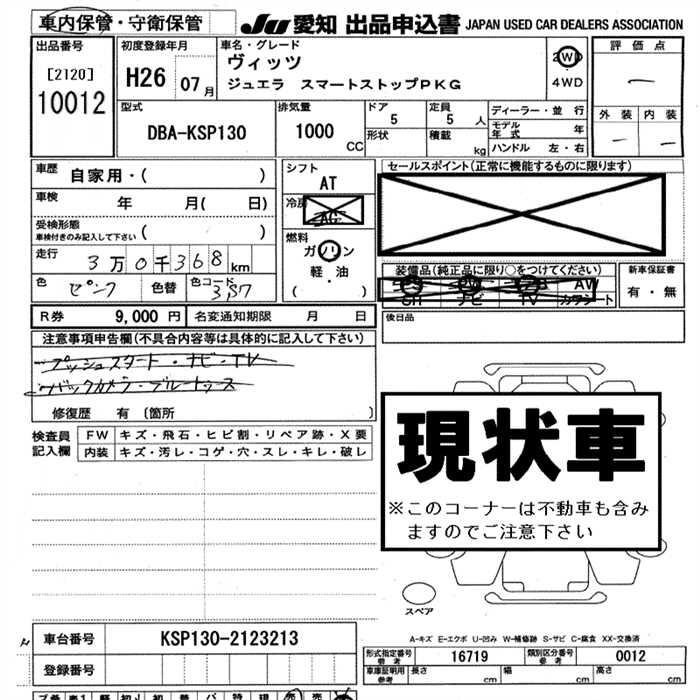 車内保管・守衛保管 JU 愛知 出品申込書 JAPAN USED CAR DEALERS ASSOCIATION
出品番号 初度登録年月 車名・グレード 評価点
[2120] H26 07月 ヴィッツ 2WD
10012 ジュエラ スマートストップPKG ・4WD
型式 排気量 ドア 定員 ディーラー・並行 外装 内装
DBA-KSP130 1000 CC 5 5人 モデル年式 年
形状 積載 kg ハンドル 左・右
車歴 自家用・( ) シフト セールスポイント(正常に機能するものに限ります)
AT
車検 年 月( 日) 冷房 AC
受検形態
車検付きのみ記入して下さい ( ) 燃料
走行 3万0千368km ガソリン 装備品(純正品に限り○をつけてください) 新車保証書
軽・油 PS PW AW 有・無
色 ピンク 色替 色コード ( ) SR ナビ TV カワシート
R券 9,000円 名変通知期限 月 日 後日品
注意事項申告欄(不具合内容等は具体的に記入して下さい)
プッシュスタート・ナビ・TV
バックカメラ・ブルートゥース
修復歴 有〔箇所 〕
現状車
検査員 FW キズ・飛石・ヒビ割・リペア跡・X要
記入欄 内装 キズ・汚レ・コゲ・穴・スレ・キレ・破レ
※このコーナーは不動車も含み
ますのでご注意下さい
スペア
A-キズ E-エクボ U-凹み W-補修跡 S-サビ C-腐食 XX-交換済
車台番号 KSP130-2123213 形式指定番号 参考 16719 類別区分番号 参考 0012
登録番号 車庫証明用 参考 長さ cm 幅 cm 高さ cm